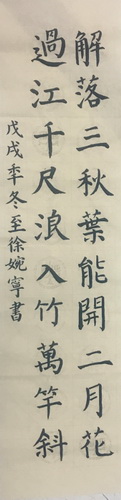 解落三秋葉能開二月花
過江千尺浪入竹萬竿斜
戊戌年冬至徐婉寧書